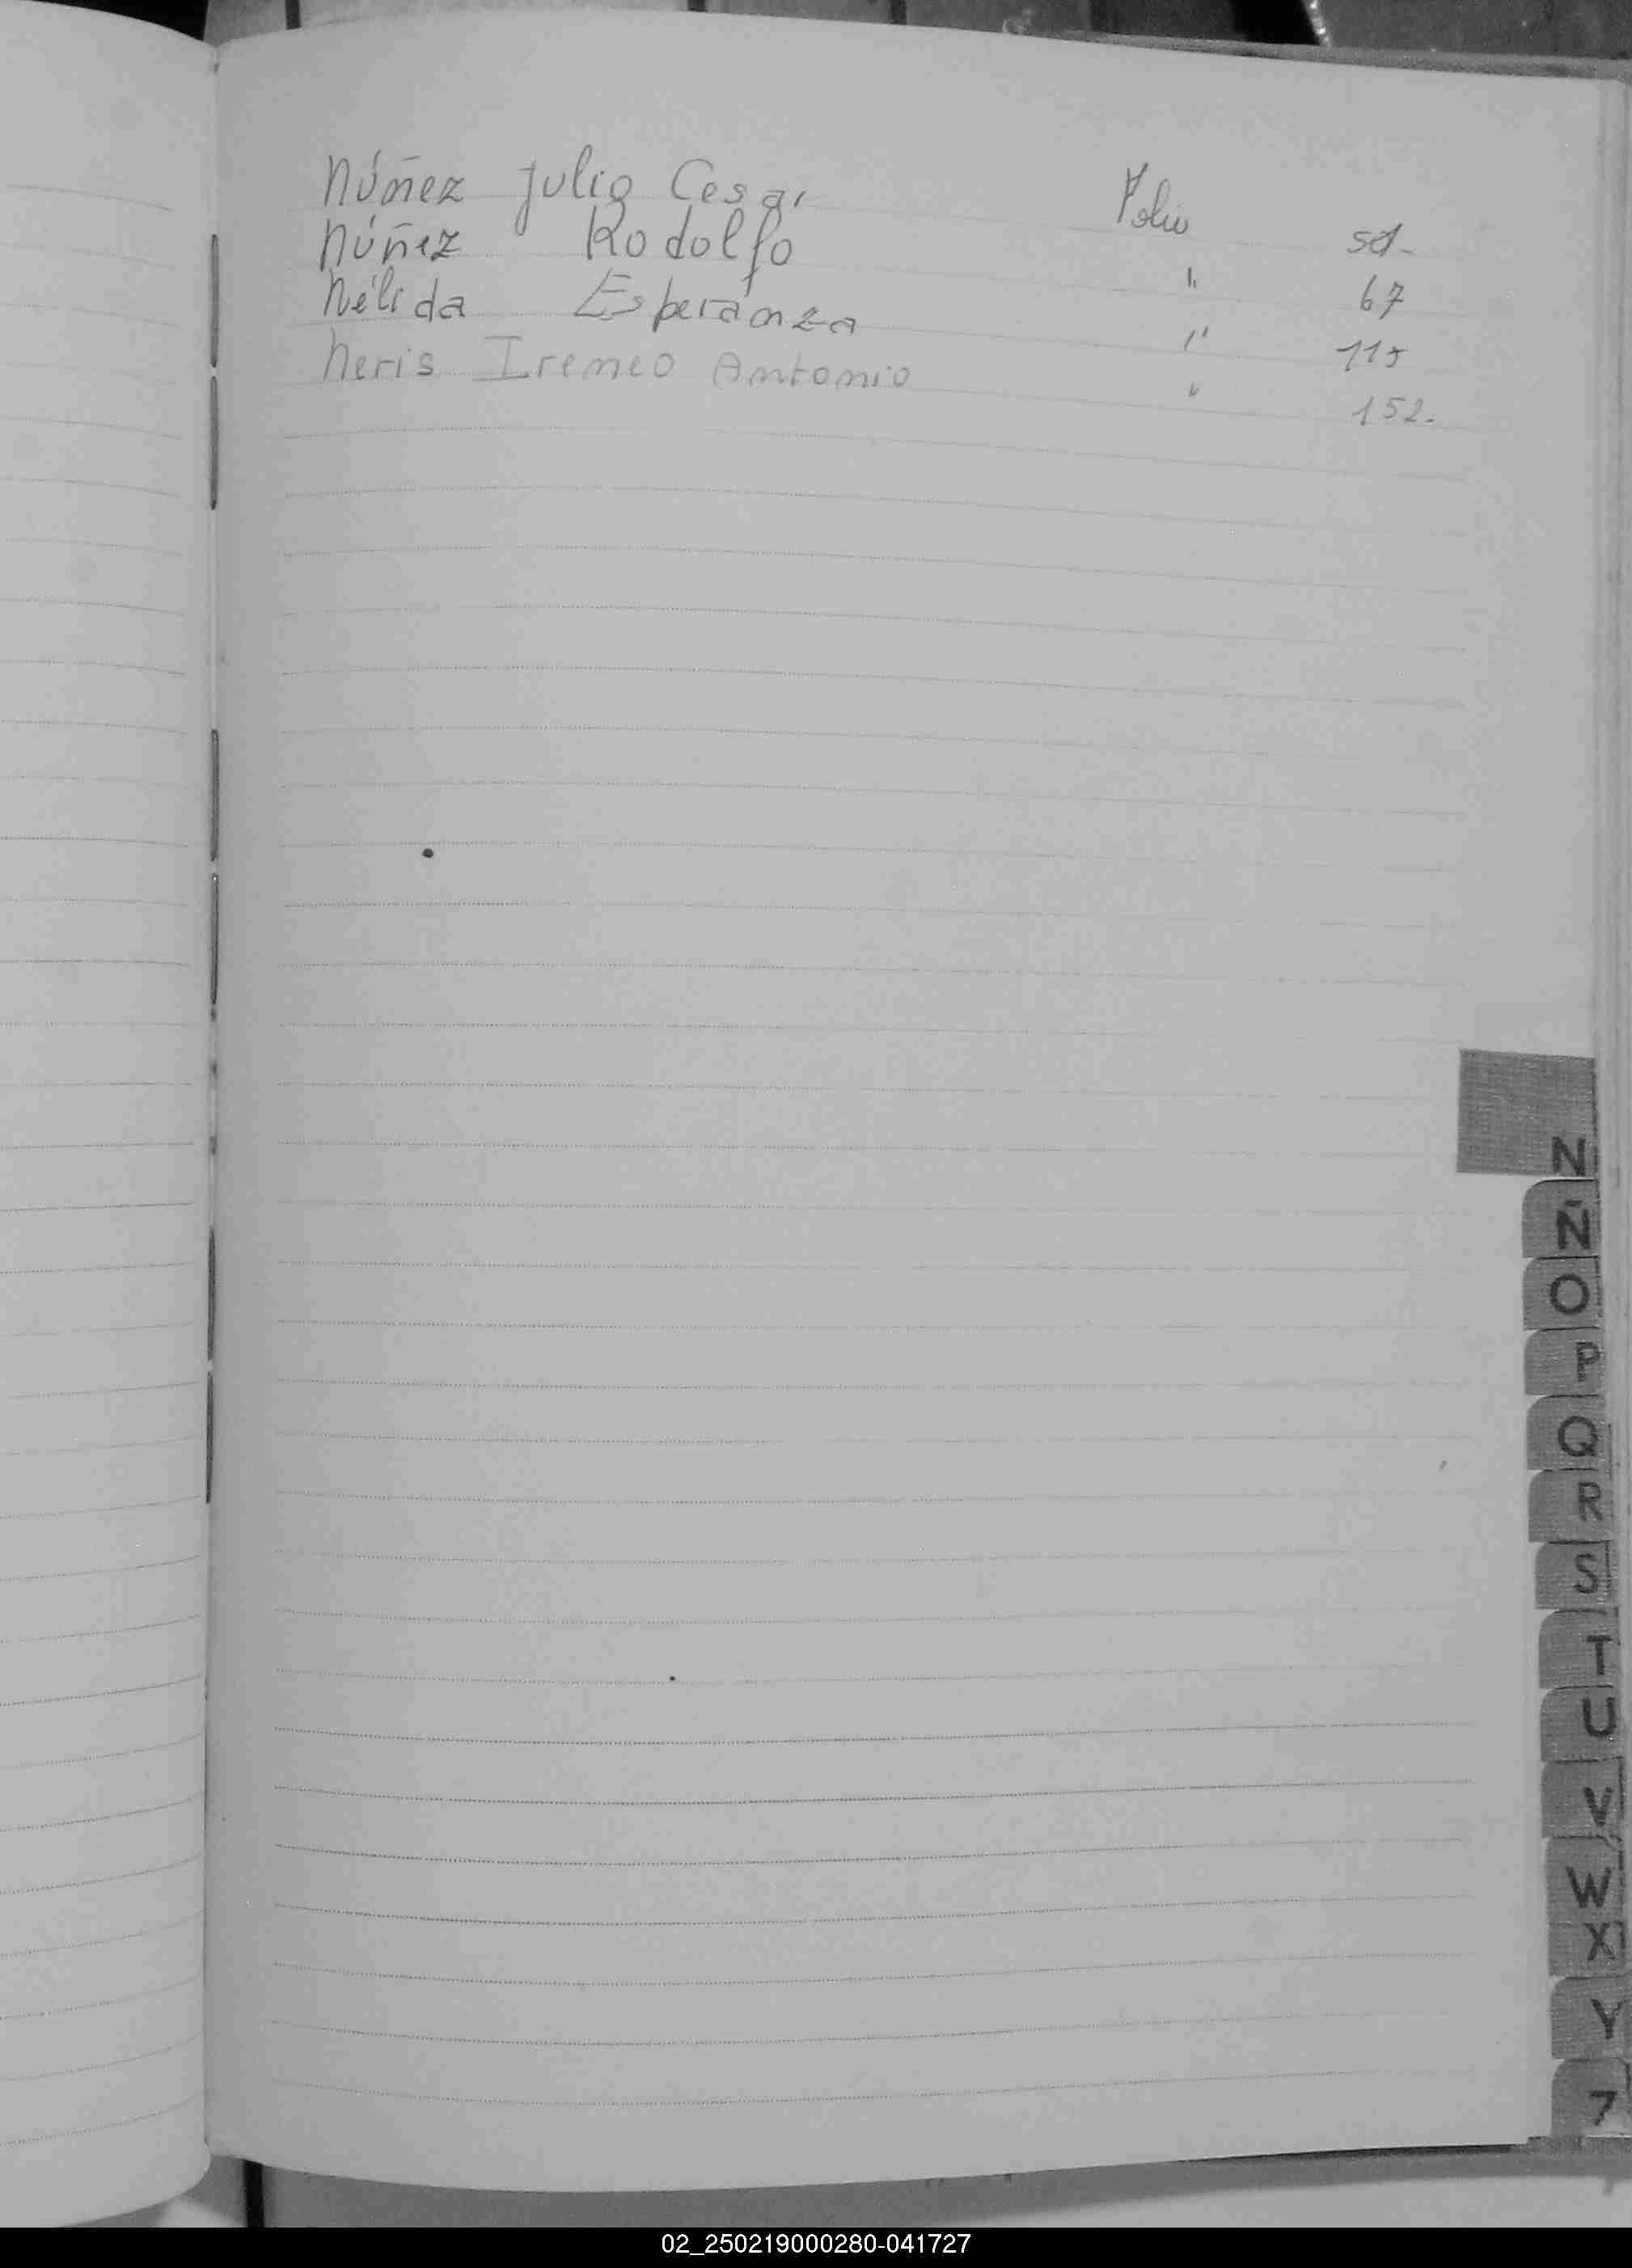 Núñez Julio Cesar Folio
Núñez Rodolfo " 67
Nélida Esperanza " 115
Neris Ireneo Antonio " 152.
N
Ñ
O
P
Q
R
S
T
U
V
W
X
Y
Z
02_250219000280-041727